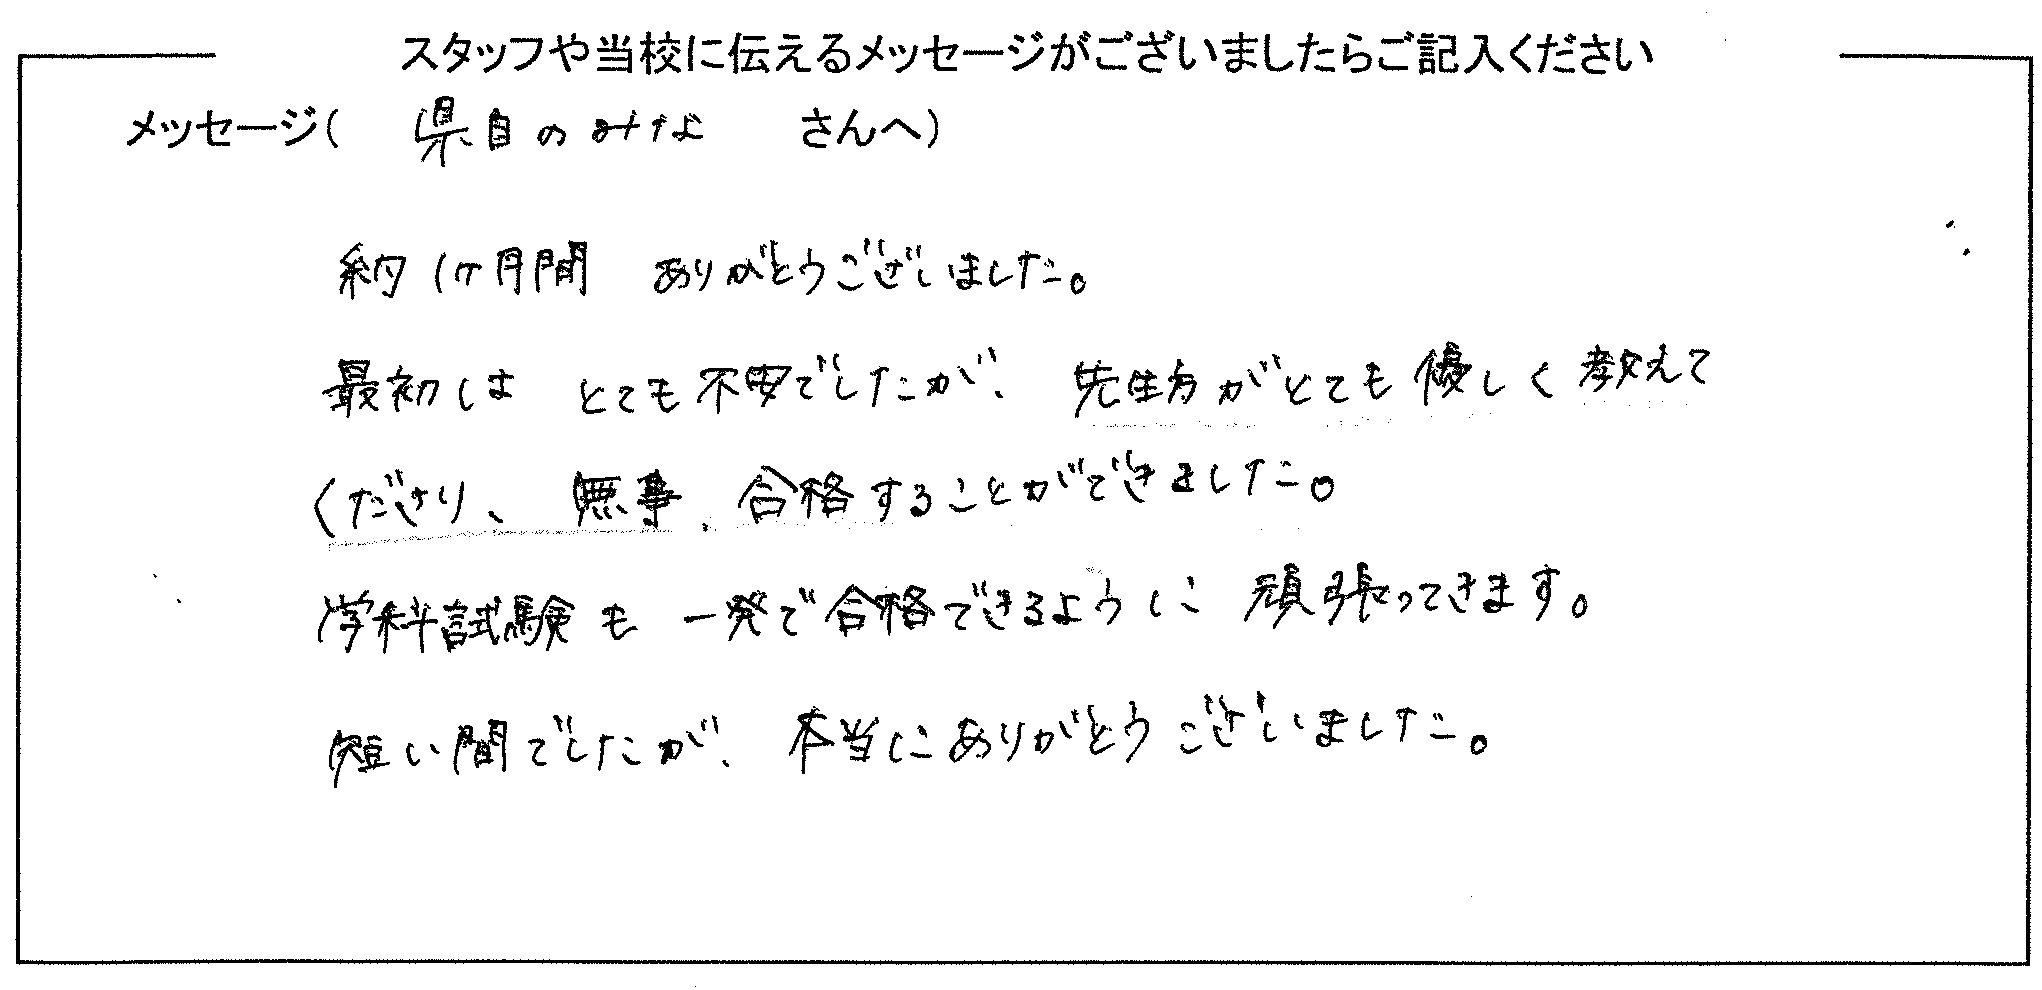 スタッフや当校に伝えるメッセージがございましたらご記入ください
メッセージ( 県自のみなさんへ)
約1ヶ月間 ありがとうございました。
最初は とても不安でしたが、先生方がとても優しく教えて
くださり、無事、合格することができました。
学科試験も一発で合格できるように頑張ってきます。
短い間でしたが、本当にありがとうございました。